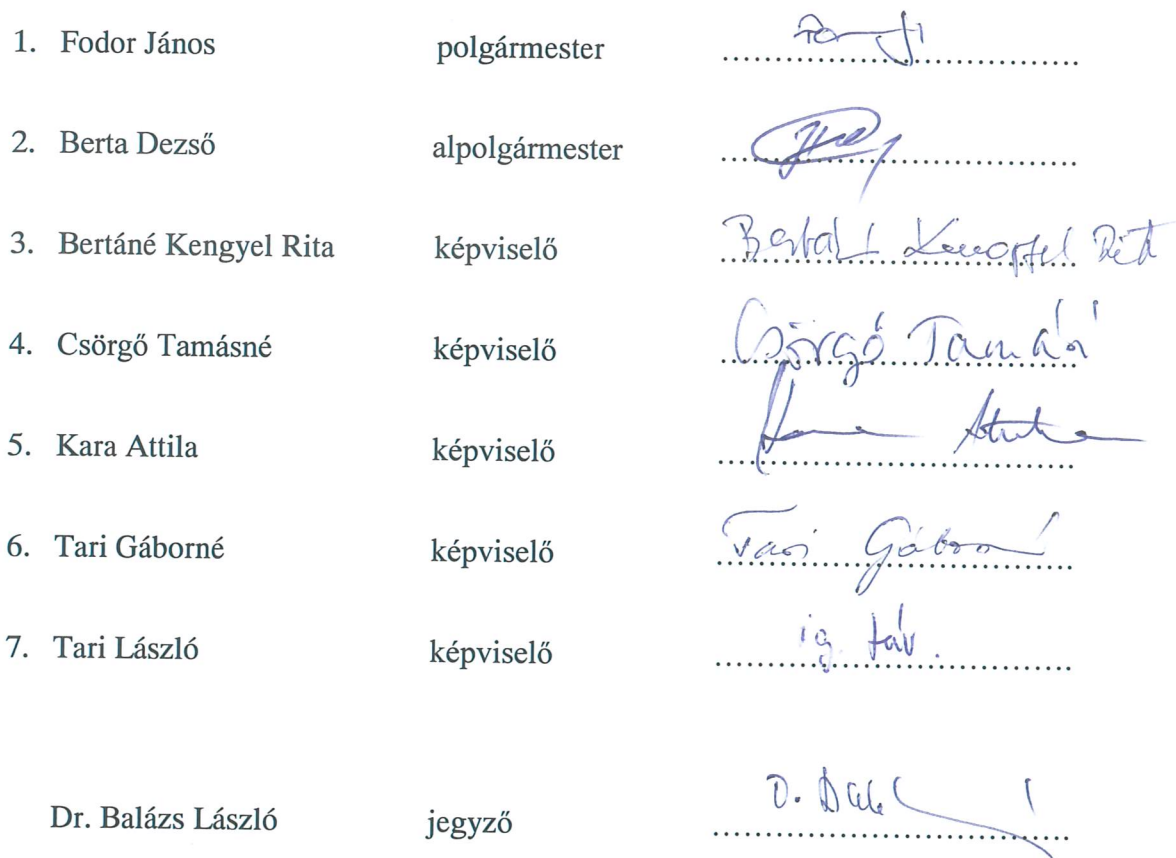 1. Fodor János polgármester
2. Berta Dezső alpolgármester
3. Bertáné Kengyel Rita képviselő
4. Csörgő Tamásné képviselő Csörgő Tamás
5. Kara Attila képviselő
6. Tari Gáborné képviselő Tari Gáborné
7. Tari László képviselő ig. táv.
Dr. Balázs László jegyző